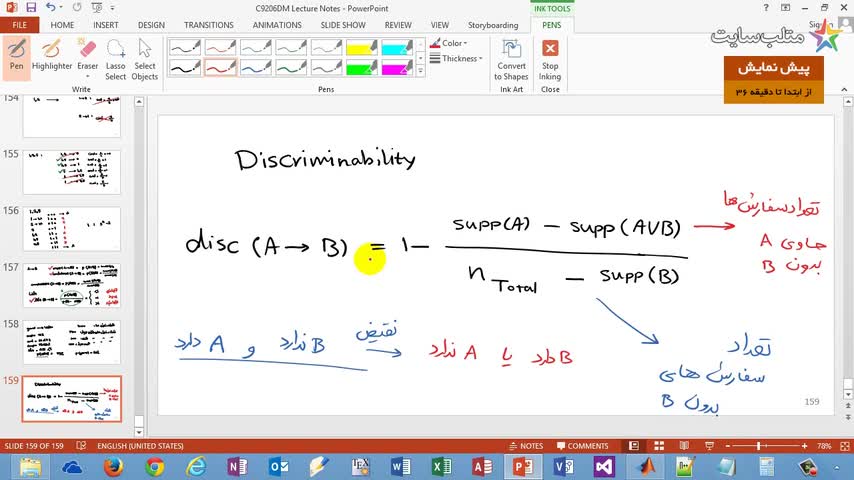 C9206DM Lecture Notes - PowerPoint
INK TOOLS
FILE HOME INSERT DESIGN TRANSITIONS ANIMATIONS SLIDE SHOW REVIEW VIEW Storyboarding PENS
Pen Highlighter Eraser Lasso Select Select Objects
Color
Thickness
Convert to Shapes
Stop Inking
Write Pens Ink Art Close
متلب‌سایت
پیش نمایش
از ابتدا تا دقیقه ۳۶
154
155
156
157
158
159
Discriminability
disc (A → B) = 1 - supp(A) - supp(A∪B)
n Total - supp(B)
تعداد سفارش ها
حاوی A
بدون B
A دارد و B ندارد نقیض A ندارد یا B دارد
تعداد
سفارش های
بدون B
159
SLIDE 159 OF 159 ENGLISH (UNITED STATES) NOTES COMMENTS 78%